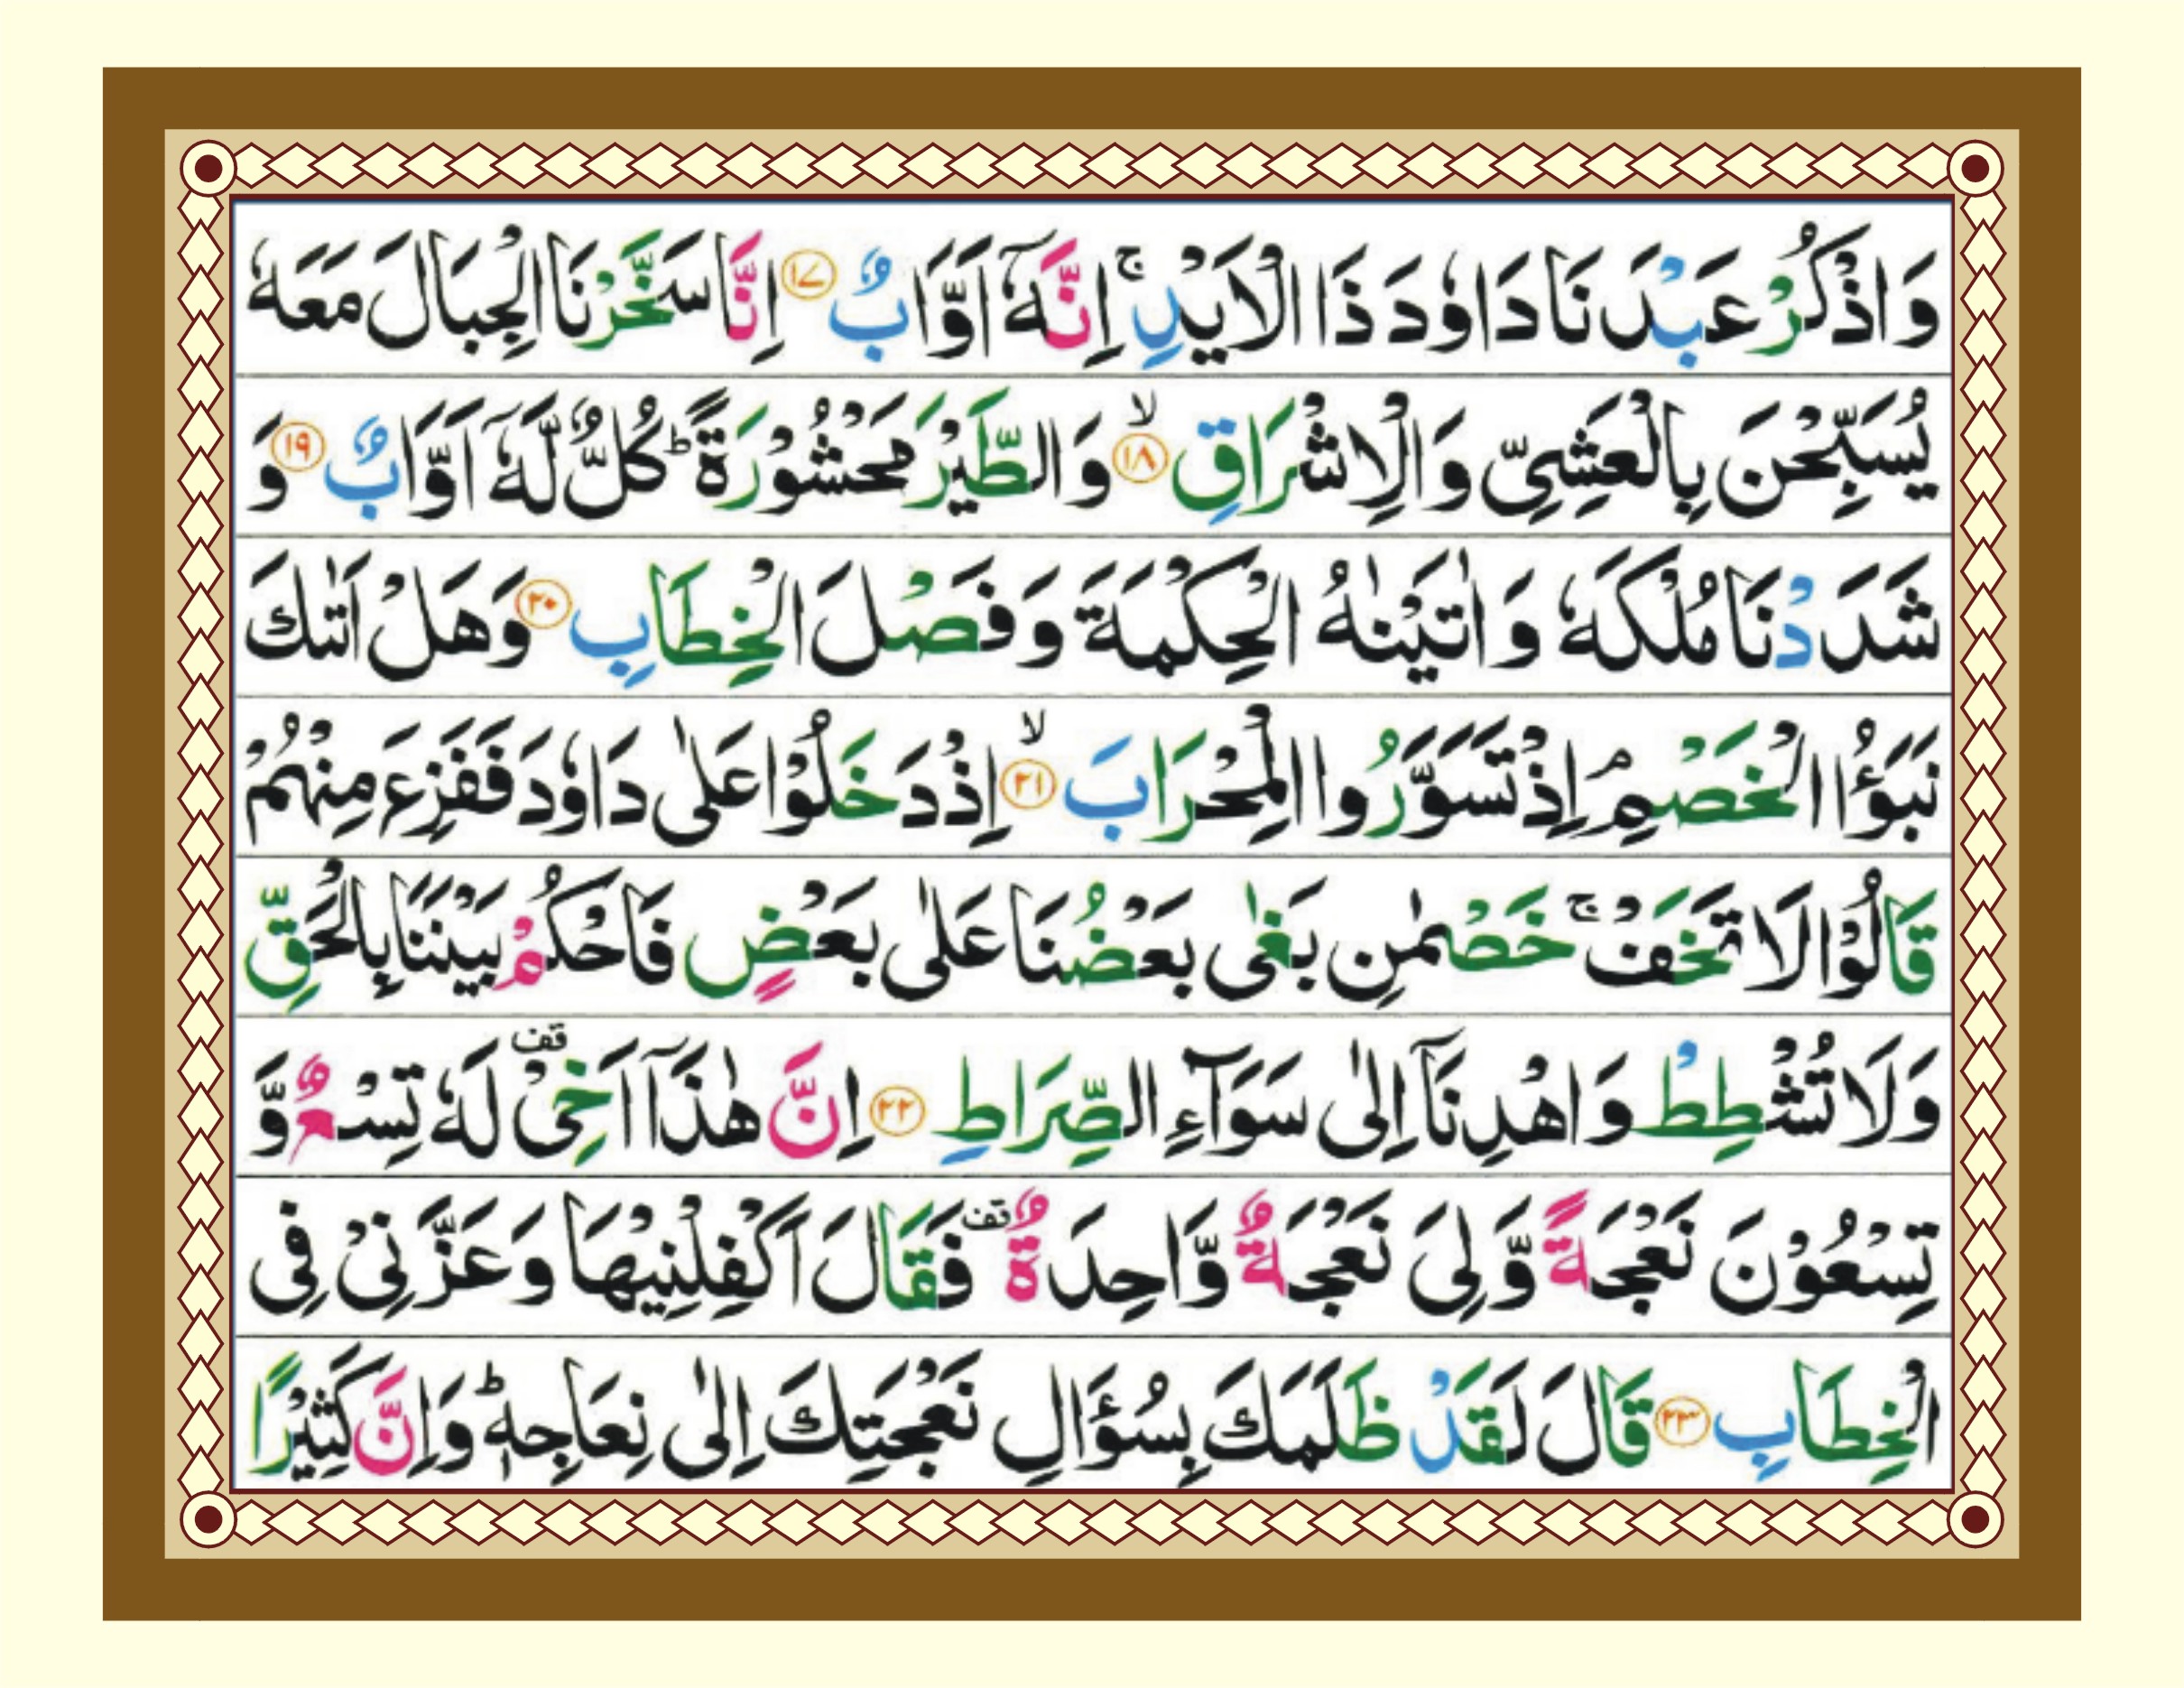 وَاذْكُرْ عَبْدَنَا دَاوٗدَ ذَا الْاَيْدِ ۚ اِنَّهٗۤ اَوَّابٌ ﴿۱۷﴾ اِنَّا سَخَّرْنَا الْجِبَالَ مَعَهٗ
يُسَبِّحْنَ بِالْعَشِيِّ وَالْاِشْرَاقِ ﴿۱۸﴾ۙ وَالطَّيْرَ مَحْشُوْرَةً ؕ كُلٌّ لَّهٗۤ اَوَّابٌ ﴿۱۹﴾ وَ
شَدَدْنَا مُلْكَهٗ وَاٰتَيْنٰهُ الْحِكْمَةَ وَفَصْلَ الْخِطَابِ ﴿۲۰﴾ وَهَلْ اَتٰىكَ
نَبَؤُا الْخَصْمِ ۘ اِذْ تَسَوَّرُوا الْمِحْرَابَ ﴿۲۱﴾ۙ اِذْ دَخَلُوْا عَلٰى دَاوٗدَ فَفَزِعَ مِنْهُمْ
قَالُوْا لَا تَخَفْ ۚ خَصْمٰنِ بَغٰى بَعْضُنَا عَلٰى بَعْضٍ فَاحْكُمْ بَيْنَنَا بِالْحَقِّ
وَلَا تُشْطِطْ وَاهْدِنَاۤ اِلٰى سَوَآءِ الصِّرَاطِ ﴿۲۲﴾ اِنَّ هٰذَاۤ اَخِيْ قف لَهٗ تِسْعٌ وَّ
تِسْعُوْنَ نَعْجَةً وَّلِيَ نَعْجَةٌ وَّاحِدَةٌ قف فَقَالَ اَكْفِلْنِيْهَا وَعَزَّنِيْ فِي
الْخِطَابِ ﴿۲۳﴾ قَالَ لَقَدْ ظَلَمَكَ بِسُؤَالِ نَعْجَتِكَ اِلٰى نِعَاجِهٖ ؕ وَاِنَّ كَثِيْرًا